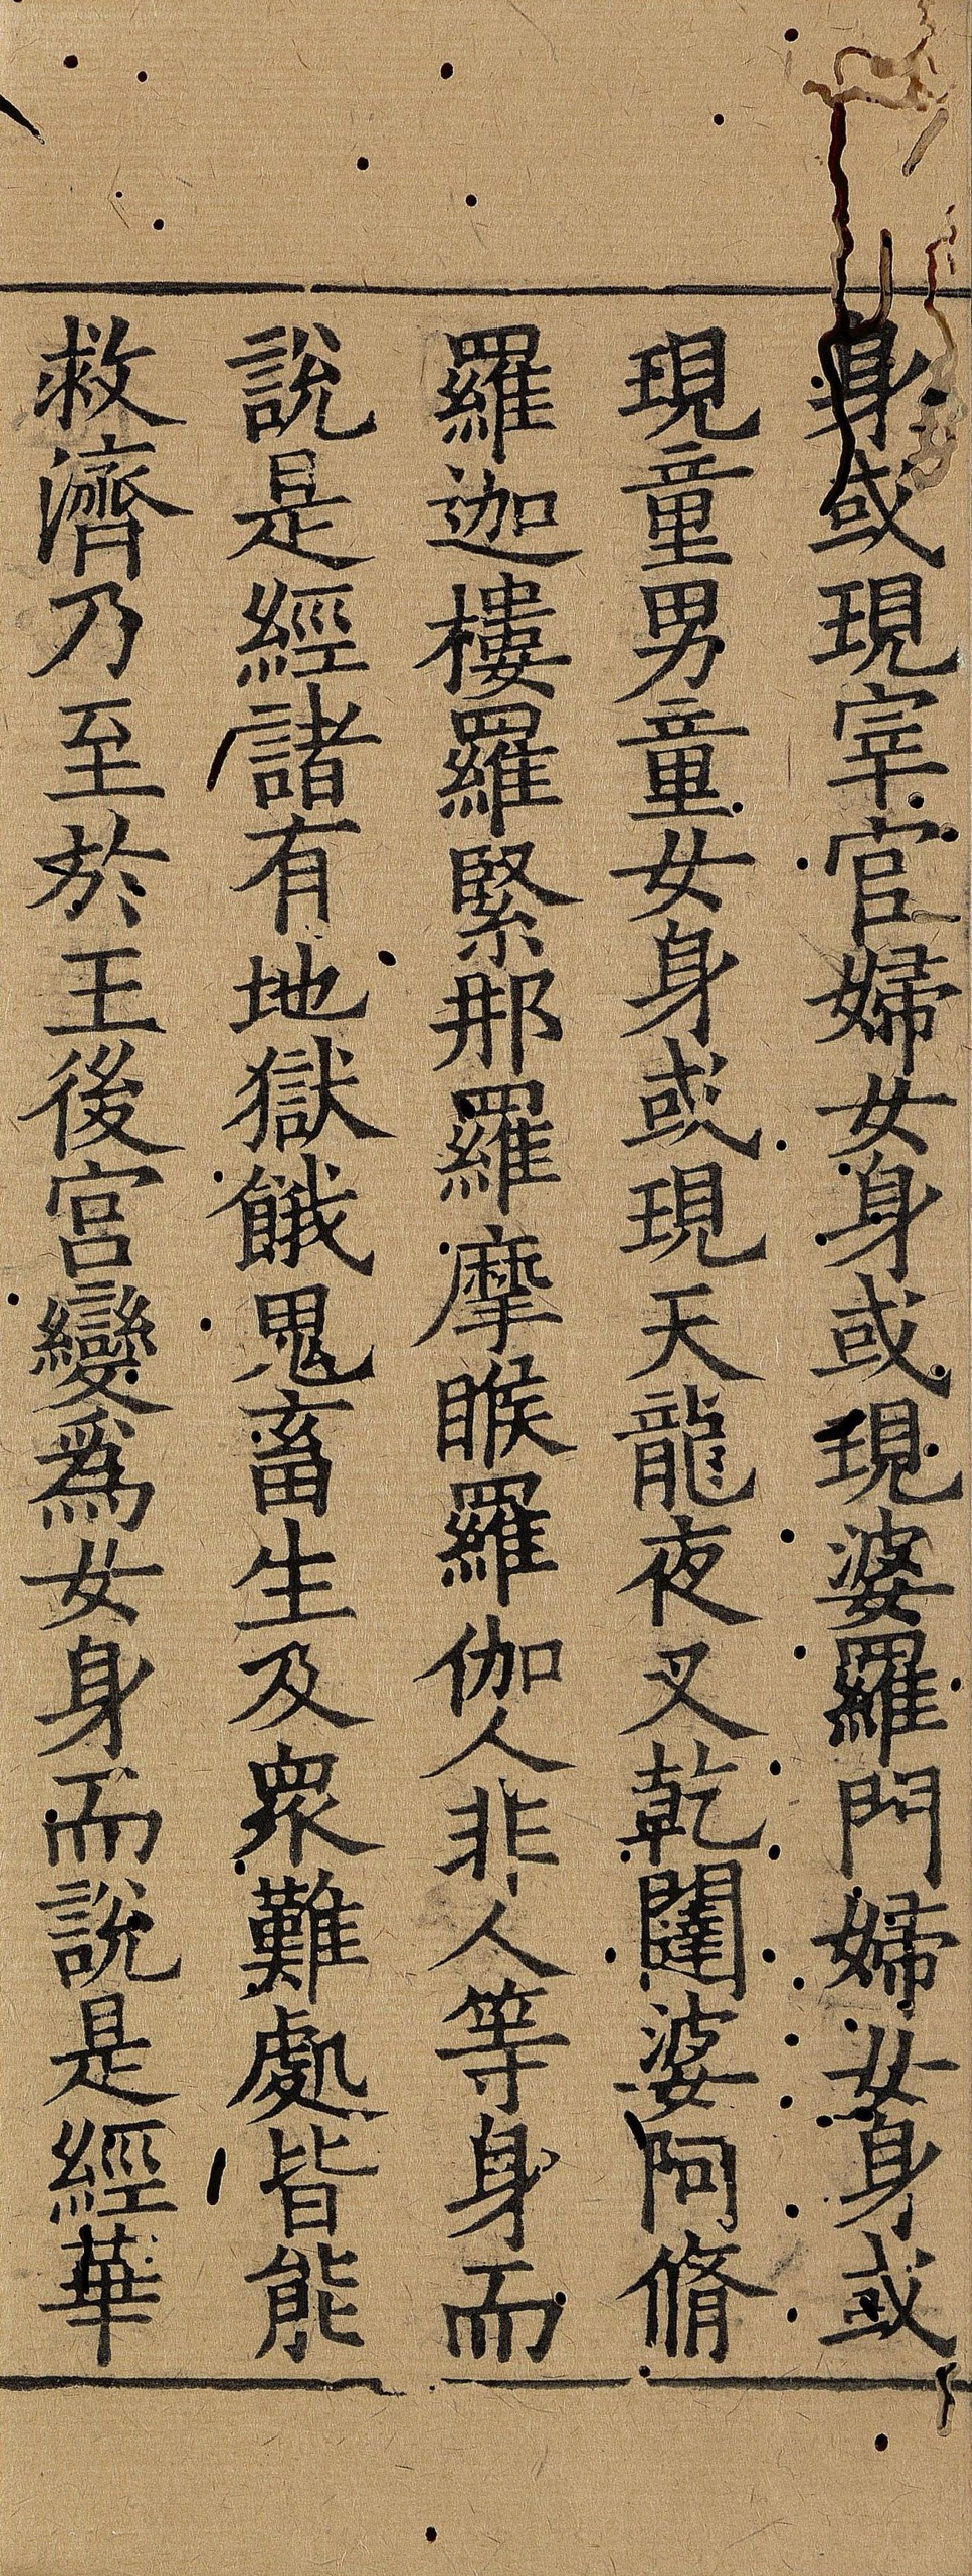 身或現宰官婦女身或現婆羅門婦女身或
現童男童女身或現天龍夜叉乾闥婆阿脩
羅迦樓羅緊那羅摩睺羅伽人非人等身而
說是經諸有地獄餓鬼畜生及衆難處皆能
救濟乃至於王後宮變爲女身而說是經華